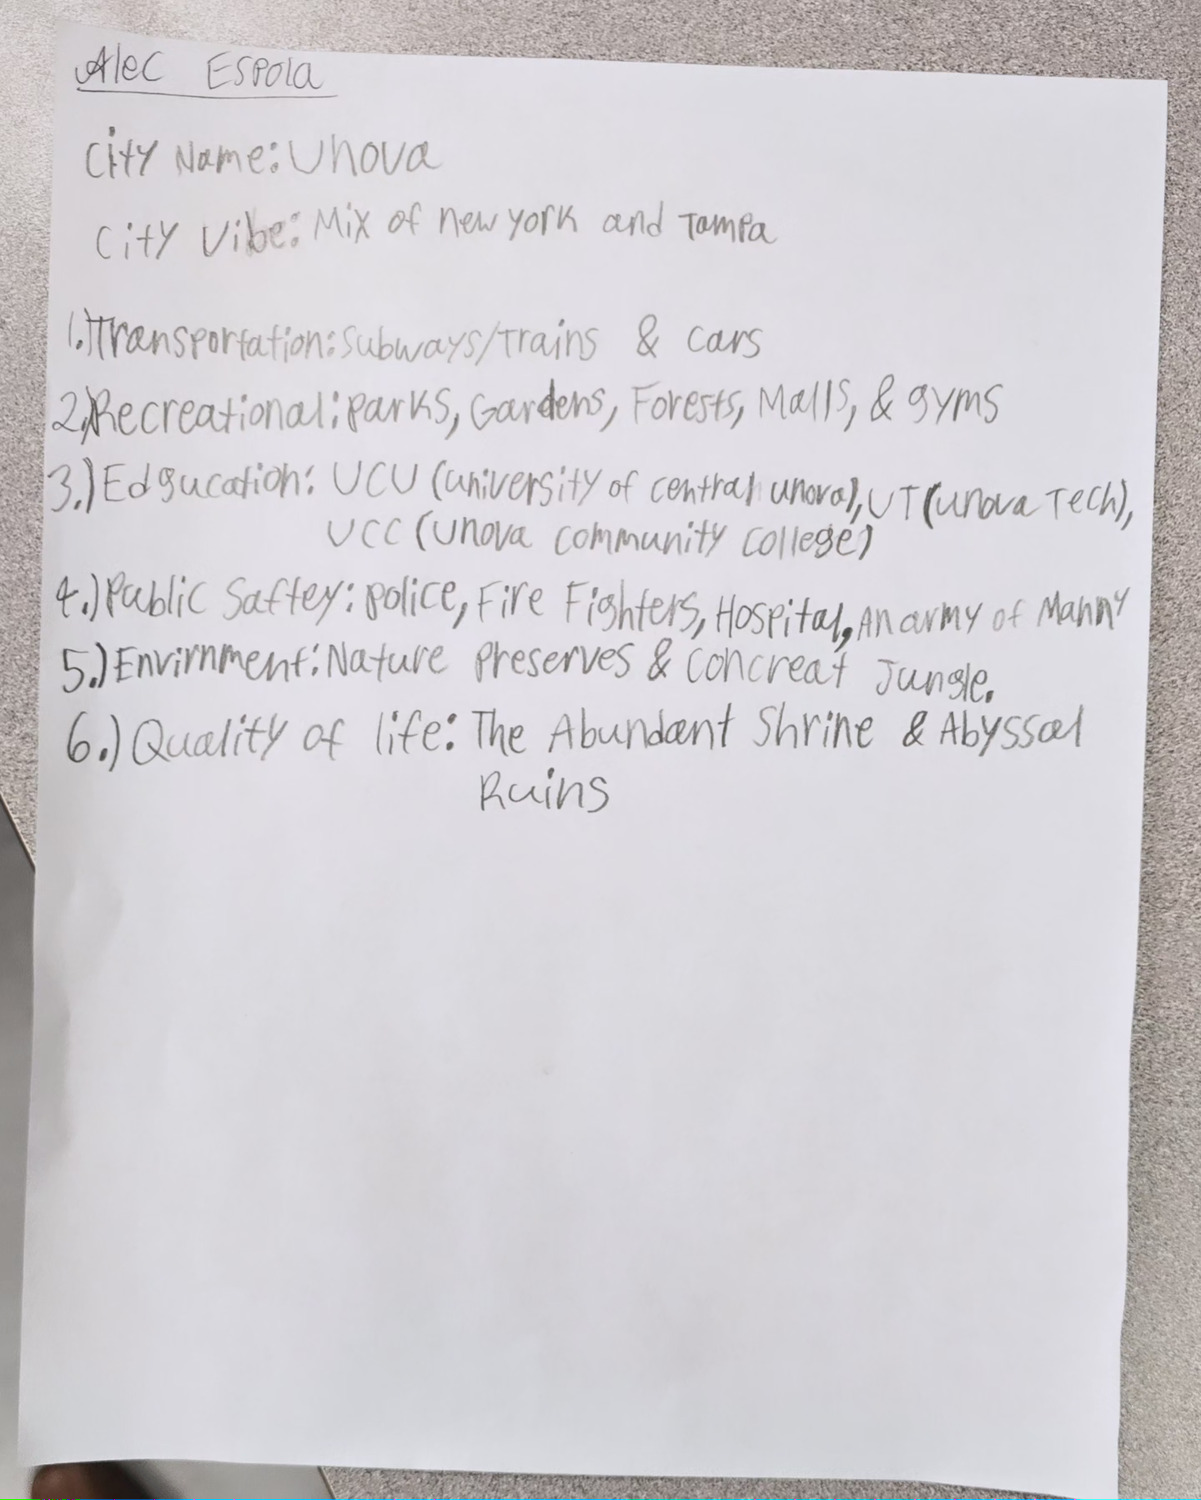 Alec Espola
City Name: Unova
City Vibe: Mix of new york and Tampa
1.) Transportation: Subways/Trains & Cars
2.) Recreational: Parks, Gardens, Forests, Malls, & gyms
3.) Edgucation: UCU (university of central unova), UT (unova Tech),
UCC (unova community college)
4.) Public Saftey: Police, Fire Fighters, Hospital, An army of Manny
5.) Envirnment: Nature Preserves & Concreat Jungle.
6.) Quality of life: The Abundant Shrine & Abyssal
Ruins